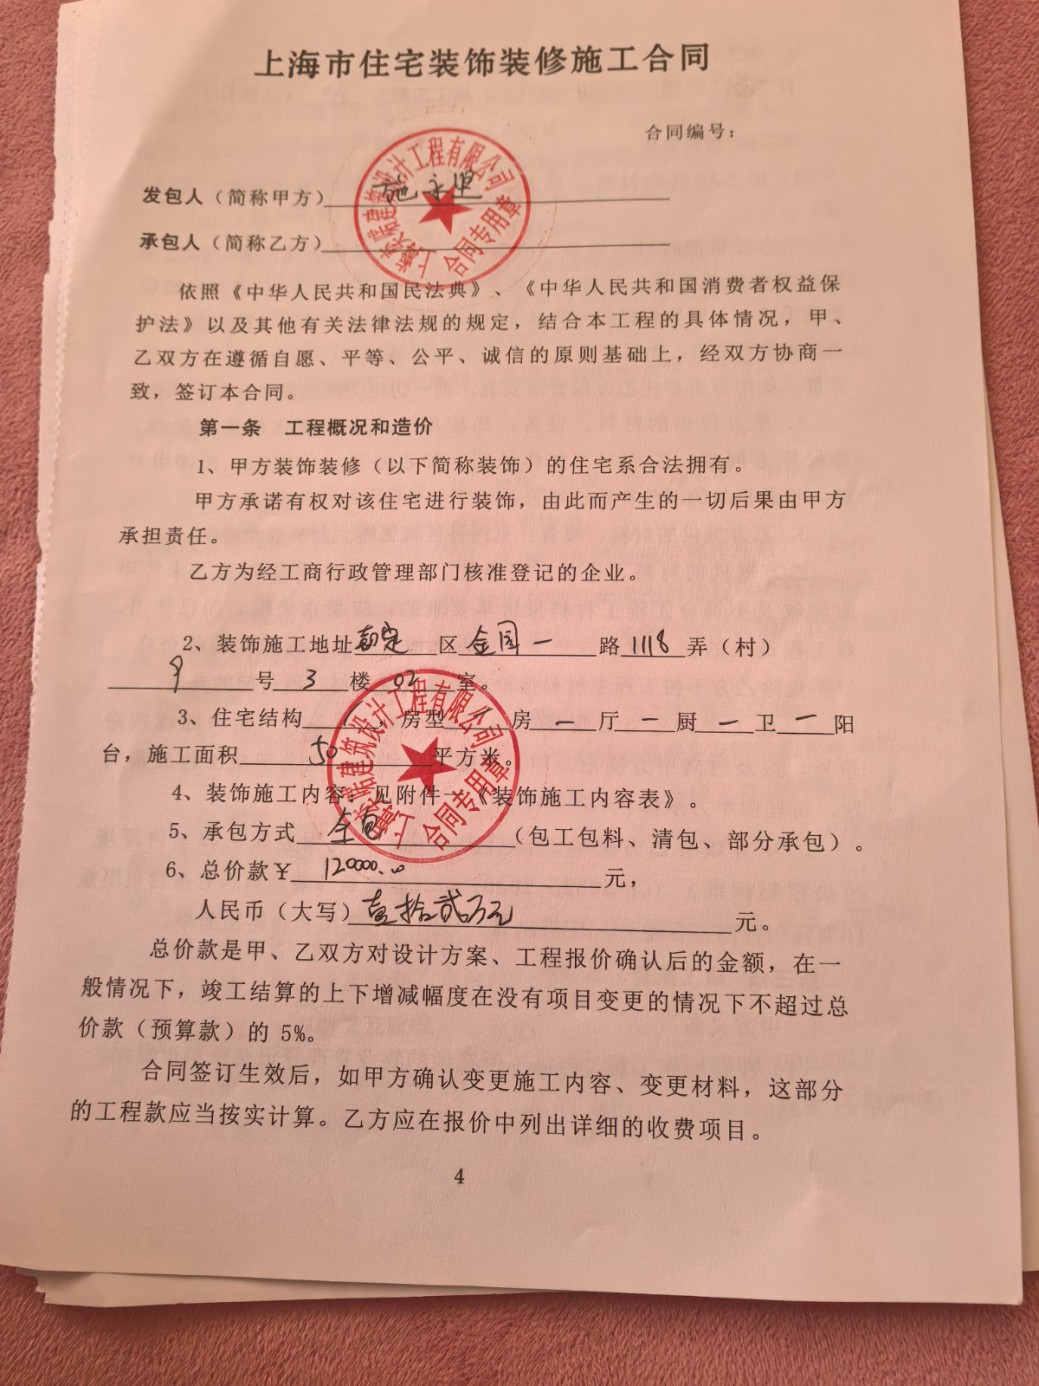 上海市住宅装饰装修施工合同
合同编号：
发包人（简称甲方）施
承包人（简称乙方）
建筑设计工程有限公司
合同专用章
依照《中华人民共和国民法典》、《中华人民共和国消费者权益保
护法》以及其他有关法律法规的规定，结合本工程的具体情况，甲、
乙双方在遵循自愿、平等、公平、诚信的原则基础上，经双方协商一
致，签订本合同。
第一条 工程概况和造价
1、甲方装饰装修（以下简称装饰）的住宅系合法拥有。
甲方承诺有权对该住宅进行装饰，由此而产生的一切后果由甲方
承担责任。
乙方为经工商行政管理部门核准登记的企业。
2、装饰施工地址嘉定区金园一路1118弄（村）
号3楼02室。
3、住宅结构/，房型1房一厅一厨一卫一阳
台，施工面积50平方米。
建筑设计工程有限公司
合同专用章
4、装饰施工内容：见附件一《装饰施工内容表》。
5、承包方式全包（包工包料、清包、部分承包）。
6、总价款￥120000.00元，
人民币（大写）壹拾贰万元元。
总价款是甲、乙双方对设计方案、工程报价确认后的金额，在一
般情况下，竣工结算的上下增减幅度在没有项目变更的情况下不超过总
价款（预算款）的 5%。
合同签订生效后，如甲方确认变更施工内容、变更材料，这部分
的工程款应当按实计算。乙方应在报价中列出详细的收费项目。
4